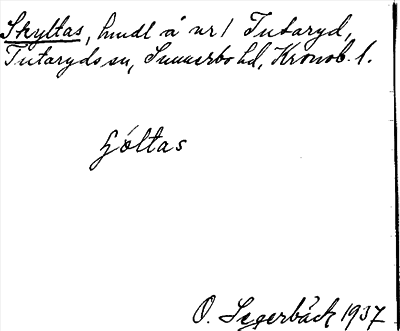 Skyltas, hmdl å nr 1 Tutaryd,
Tutaryds sn, Sunnerbo hd, Kronob. l.
O. Segerbäck 1937